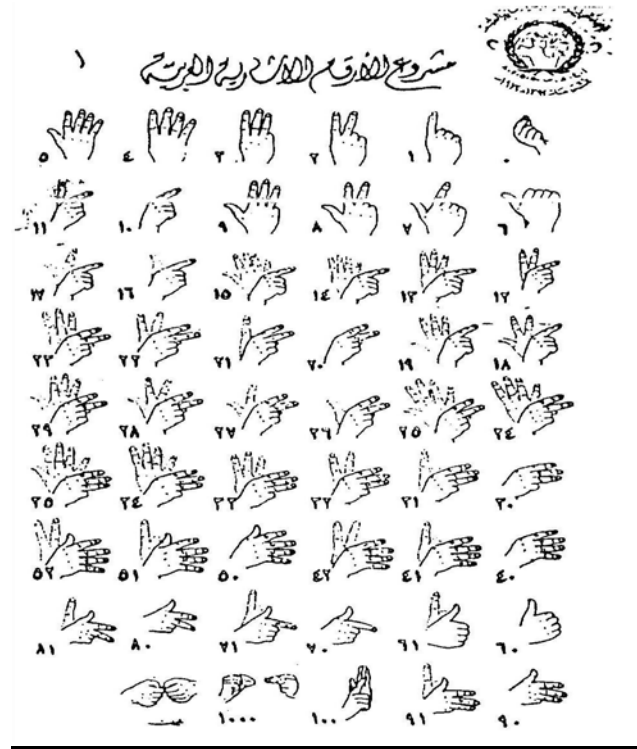 مشروع الأرقام الإشارية العربية ١
٠ ١ ٢ ٣ ٤ ٥
٦ ٧ ٨ ٩ ١٠ ١١
١٢ ١٣ ١٤ ١٥ ١٦ ١٧
١٨ ١٩ ٢٠ ٢١ ٢٢ ٢٣
٢٤ ٢٥ ٢٦ ٢٧ ٢٨ ٢٩
٣٠ ٣١ ٣٢ ٣٣ ٣٤ ٣٥
٤٠ ٤١ ٤٢ ٥٠ ٥١ ٥٢
٦٠ ٦١ ٧٠ ٧١ ٨٠ ٨١
٩٠ ٩١ ١٠٠ ١٠٠٠